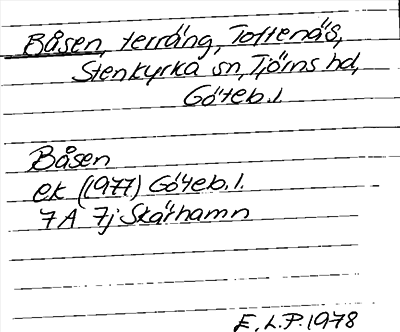 Båsen, terräng, Toftenäs,
Stenkyrka sn, Tjörns hd,
Göteb. l.
Båsen
ek (1977) Göteb. l.
7A 7j Skärhamn
E.L.P. 1978